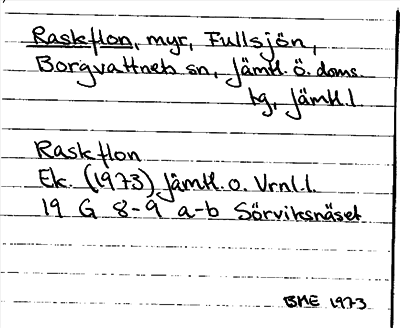 Raskflon, myr, Fullsjön,
Borgvattnets sn, Jämtl. Ö. doms.
tg, Jämtl. l
Raskflon
Ek. (1973) Jämtl. o. Vrnl. l.
19 G 8-9 a-b Sörviksnäset
BME 1973